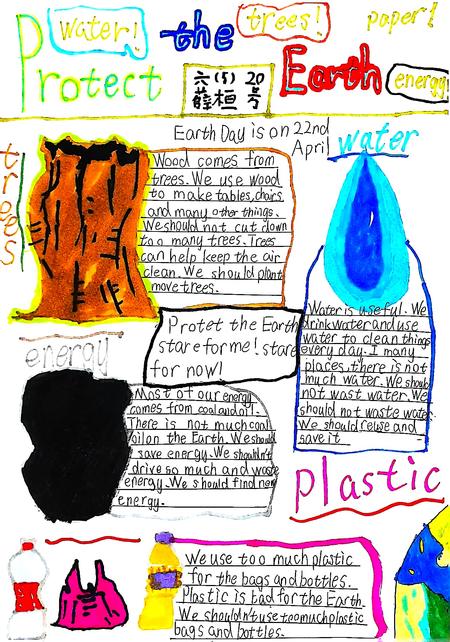 water!
the
trees!
paper!
Protect
六(5) 20
薛桓 号
Earth
energy
Earth Day is on 22nd
April
trees
Wood comes from
trees. We use wood
to make tables, chairs
and many other things.
We should not cut down
too many trees. Trees
can help keep the air
clean. We should plant
move trees.
water
Water is useful. We
drink water and use
water to clean things
every day. I many
places, there is not
much water. We should
not wast water. We
should not waste water.
We should reuse and
save it
Protet the Earth
stare for me! stare
for now!
energy
Most of our energy
comes from coal and oil.
There is not much coal
oil on the Earth. We should
save energy. We shouldn't
drive so much and waste
energy. We should find new
energy.
Plastic
We use too much plastic
for the bags and bottles.
Plastic is bad for the Earth.
We shouldn't use too much plastic
bags and bottles.